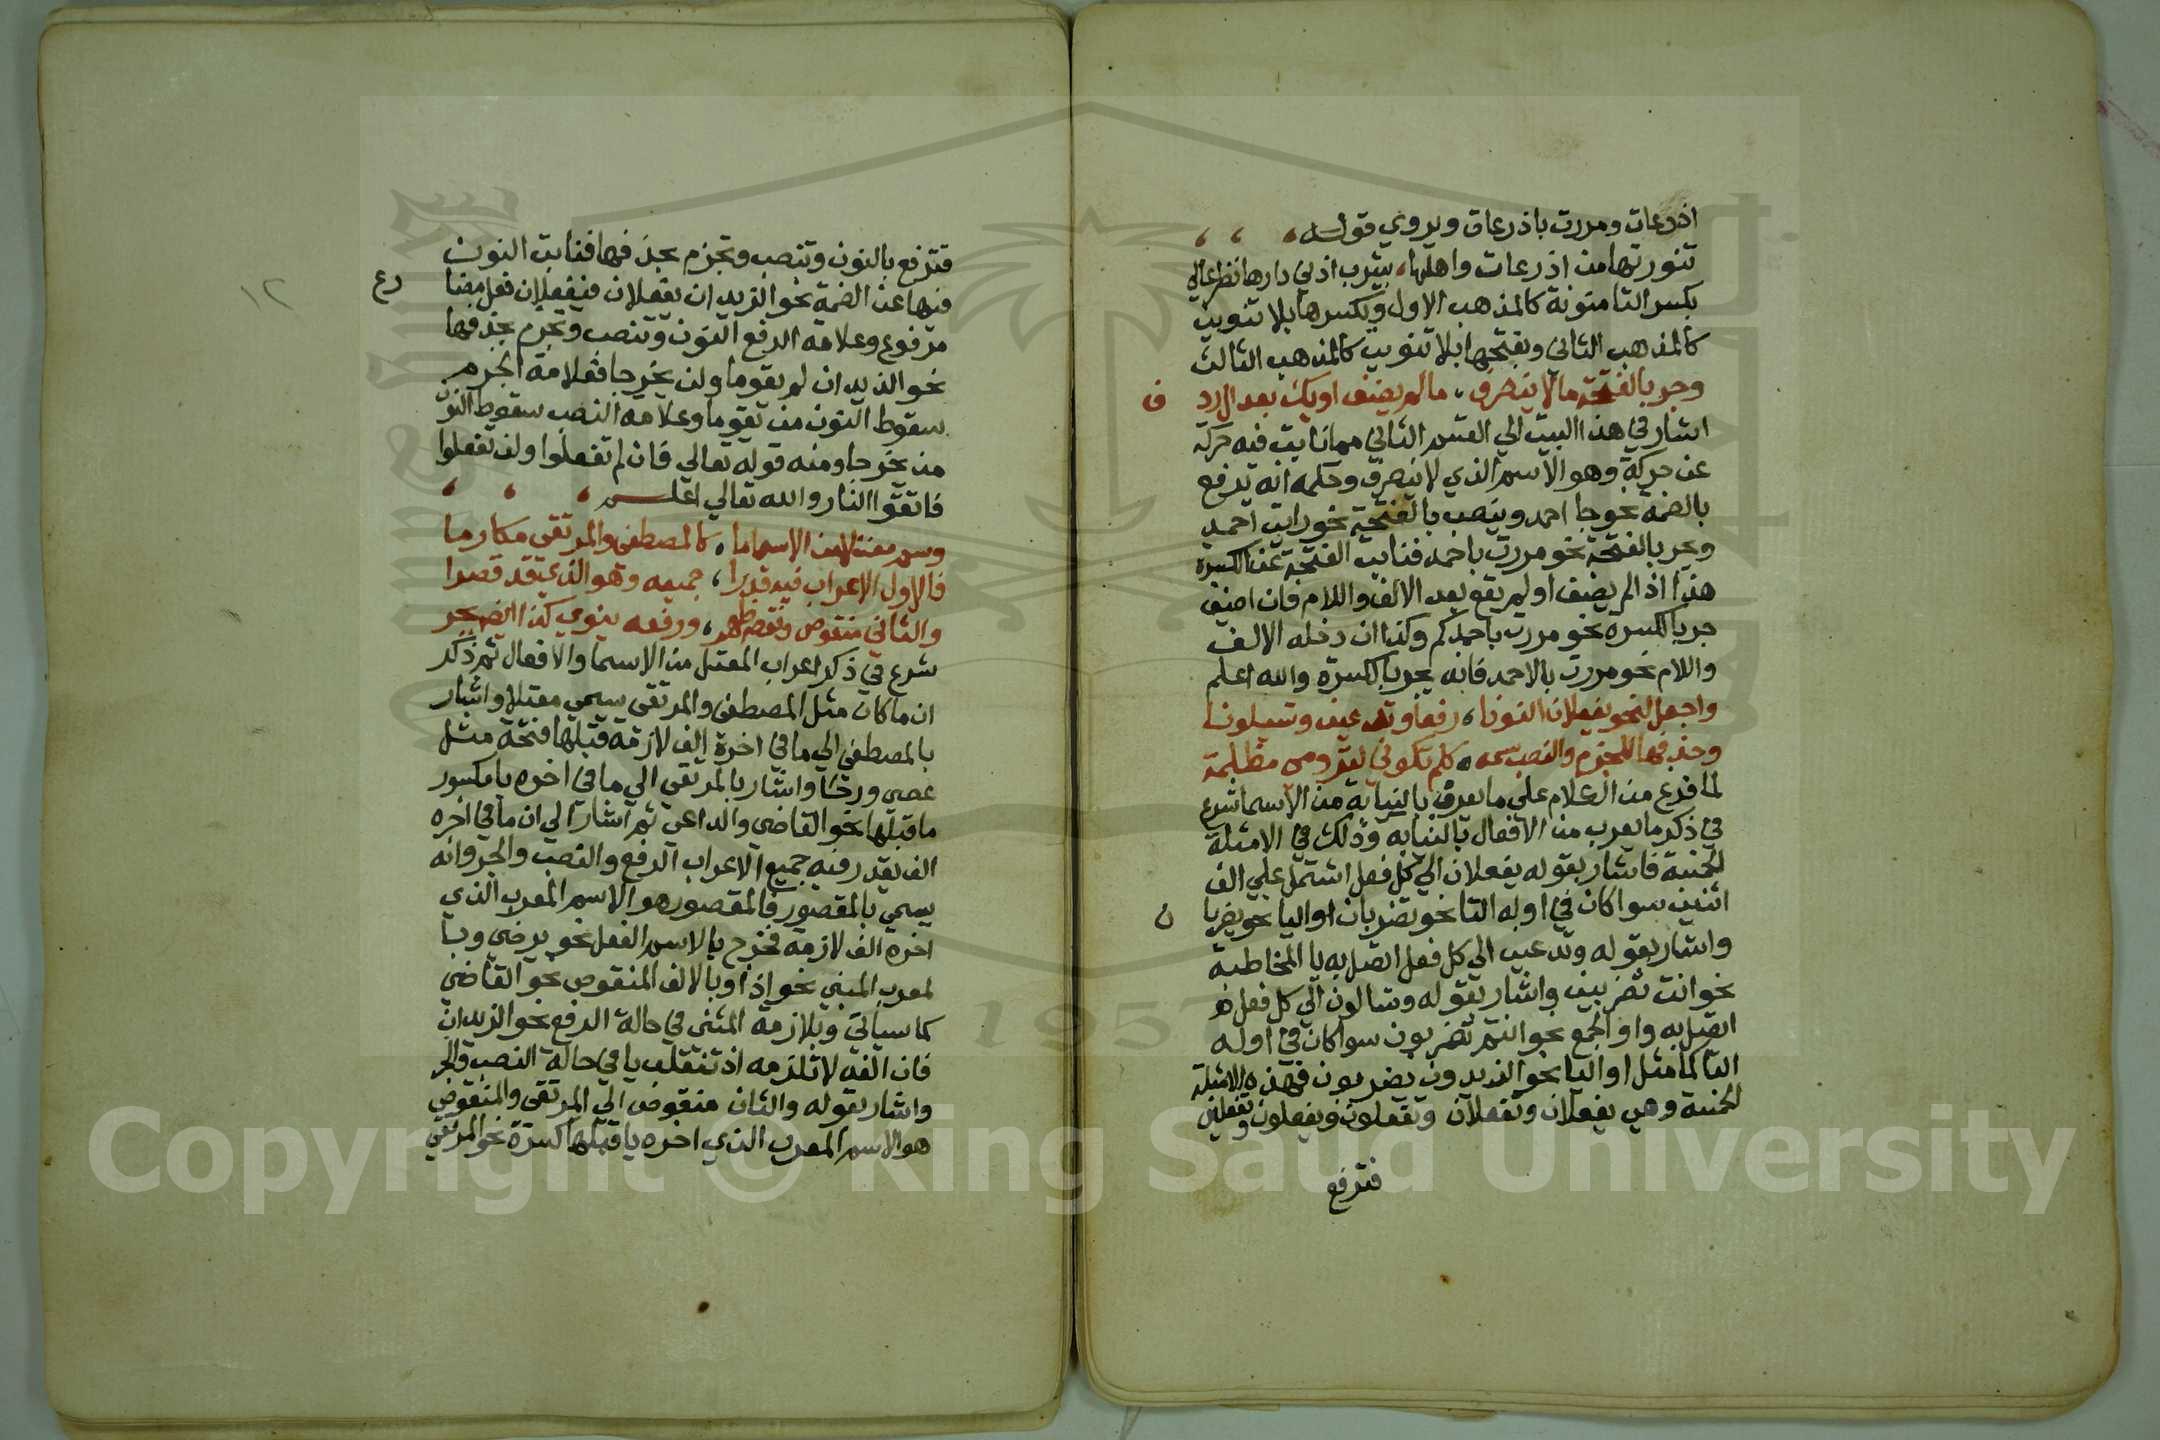 اذرعات ومررت باذرعات ويروي قوله
تنورتها من اذرعات واهلها بيثرب ادني دارها نظر عالي
بكسر التا منونة كالمذهب الاول وبكسرها بلا تنوين
كالمذهب الثاني وبفتحها بلا تنوين كالمذهب الثالث
وجر بالفتحة ما لا ينصرف ما لم يضف او يك بعد ال رد
ف
اشار في هذا البيت الي القسم الثاني مما نابت فيه حركة
عن حركة وهو الاسم الذي لا ينصرف وحكمه انه يرفع
بالضمة نحو جا احمد وينصب بالفتحة نحو رايت احمد
ويجر بالفتحة نحو مررت باحمد فنابت الفتحة عن الكسرة
هذا اذا لم يضف او لم يقع بعد الالف واللام فان اضيف
جر بالكسرة نحو مررت باحمدكم وكذا ان دخله الالف
واللام نحو مررت بالاحمد فانه يجر بالكسرة والله اعلم
واجعل لنحو يفعلان النونا رفعا وتدعين وتسلونا
وحذفها للجزم والنصب سمه كلم تكوني لترومي مظلمة
لما فرغ من الكلام علي ما يعرب بالنيابة من الاسما شرع
في ذكر ما يعرب من الافعال بالنيابه وذلك في الامثلة
الخمسة فاشار بقوله يفعلان الي كل فعل اشتمل علي الف
اثنين سوا كان في اوله التا نحو تضربان او اليا نحو يضربا
ن
واشار بقوله وتدعين الي كل فعل اتصل به يا المخاطبة
نحو انت تضربين واشار بقوله وتسالون الي كل فعل
اتصل به واو الجمع نحو انتم تضربون سوا كان في اوله
التا كما مثل او اليا نحو الزيدون يضربون فهذه الامثلة
الخمسة وهي يفعلان وتفعلان وتفعلون ويفعلون وتفعلين
فترفع
فترفع بالنون وتنصب وتجزم بحذفها فنابت النون
فيها عن الضمة نحو الزيدان يفعلان فيفعلان فعل مضا
رع
مرفوع وعلامه الرفع النون وتنصب وتجزم بحذفها
نحو الزيدان لم يقوما ولن يخرجا فعلامة الجزم
سقوط النون من يقوما وعلامه النصب سقوط النون
من يخرجا ومنه قوله تعالي فان لم تفعلوا ولن تفعلوا
فاتقوا النار والله تعالي اعلم
وسم معتلا من الاسما ما كالمصطفي والمرتقي مكارما
فالاول الاعراب فيه قدرا جميعه وهو الذي قد قصرا
والثاني منقوص ونصبه ظهر ورفعه ينوي كذا ايضا يجر
شرع في ذكر اعراب المعتل من الاسما والافعال ثم ذكر
ان ما كان مثل المصطفي والمرتقي يسمي معتلا واشار
بالمصطفي الي ما في اخره الف لازمة قبلها فتحة مثل
عصي ورحا واشار بالمرتقي الي ما في اخره يا مكسور
ما قبلها نحو القاضي والداعي ثم اشار الي ان ما في اخره
الف يقدر فيه جميع الاعراب الرفع والنصب والجر وانه
يسمي بالمقصور فالمقصور هو الاسم المعرب الذي
اخره الف لازمة فخرج بالاسم الفعل نحو يرضي وبا
لمعرب المبني نحو اذا وبالالف المنقوص نحو القاضي
كما سياتي وبلازمة المثني في حالة الرفع نحو الزيدان
فان الفه لا تلزمه اذ تنقلب يا في حالة النصب والجر
واشار بقوله والثان منقوص الي المرتقي والمنقوص
هو الاسم المعرب الذي اخره يا قبلها كسرة نحو المرتقي
١٢
Copyright © King Saud University
1957